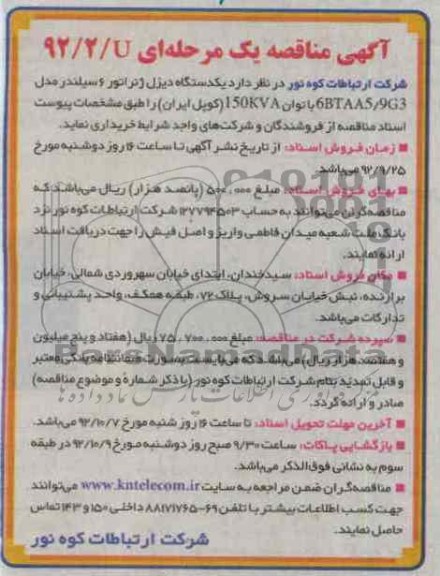 آگهی مناقصه یک مرحله‌ای ۹۲/۲/U
شرکت ارتباطات کوه نور در نظر دارد یکدستگاه دیزل ژنراتور ۶ سیلندر مدل
6BTAA5/9G3 با توان 150KVA (کوپل ایران) را طبق مشخصات پیوست
اسناد مناقصه از فروشندگان و شرکت‌های واجد شرایط خریداری نماید.
زمان فروش اسناد: از تاریخ نشر آگهی تا ساعت ۱۶ روز دوشنبه مورخ
۹۲/۹/۲۵ می‌باشد.
بهای فروش اسناد: مبلغ ۵۰۰،۰۰۰ (پانصد هزار) ریال می‌باشد که
مناقصه‌گران می‌توانند به حساب شرکت ارتباطات کوه نور نزد
بانک ملت شعبه میدان فاطمی واریز و اصل فیش را جهت دریافت اسناد
ارائه نمایند.
مکان فروش اسناد: سیدخندان، ابتدای خیابان سهروردی شمالی، خیابان
برازنده، نبش خیابان سروش، پلاک ۷۲، طبقه همکف، واحد پشتیبانی و
تدارکات می‌باشد.
سپرده شرکت در مناقصه: مبلغ ۷۵،۷۰۰،۰۰۰ ریال (هفتاد و پنج میلیون
و هفتصد هزار ریال) می‌باشد که می‌بایست بصورت ضمانتنامه بانکی معتبر
و قابل تمدید بنام شرکت ارتباطات کوه نور (با ذکر شماره و موضوع مناقصه)
صادر و ارائه گردد.
آخرین مهلت تحویل اسناد: تا ساعت ۱۶ روز شنبه مورخ ۹۲/۱۰/۷ می‌باشد.
بازگشایی پاکات: ساعت ۹/۳۰ صبح روز دوشنبه مورخ ۹۲/۱۰/۹ در طبقه
سوم به نشانی فوق‌الذکر می‌باشد.
مناقصه‌گران ضمن مراجعه به سایت www.kntelecom.ir می‌توانند
جهت کسب اطلاعات بیشتر با تلفن ۶۹-۸۸۱۷۱۷۶۵ داخلی ۱۵۰ و ۱۴۳ تماس
حاصل نمایند.
شرکت ارتباطات کوه نور